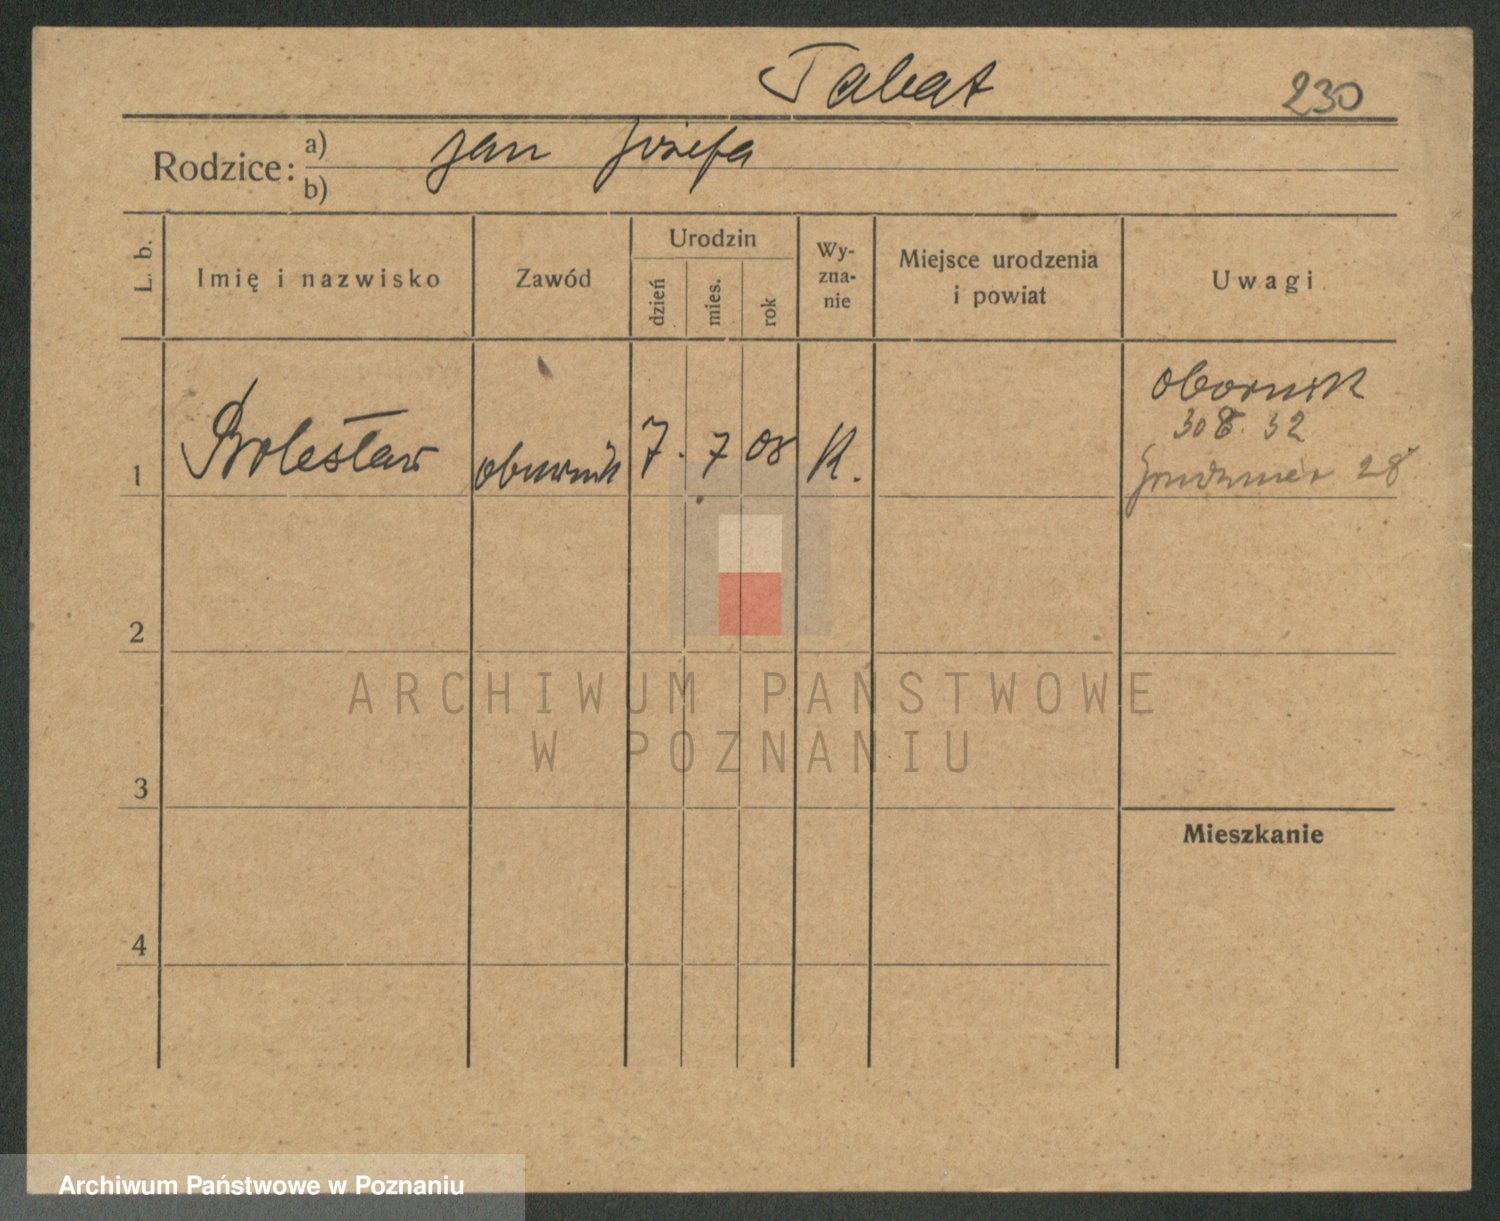 Tabat 230
Rodzice: a) Jan Józefa
b)
L. b. Imię i nazwisko Zawód Urodzin dzień mies. rok Wy-zna-nie Miejsce urodzenia i powiat Uwagi
obornik
30 8. 32
1 Bolesław obornik 7. 7 08 K.
28
2
ARCHIWUM PAŃSTWOWE
W POZNANIU
3
Mieszkanie
4
Archiwum Państwowe w Poznaniu